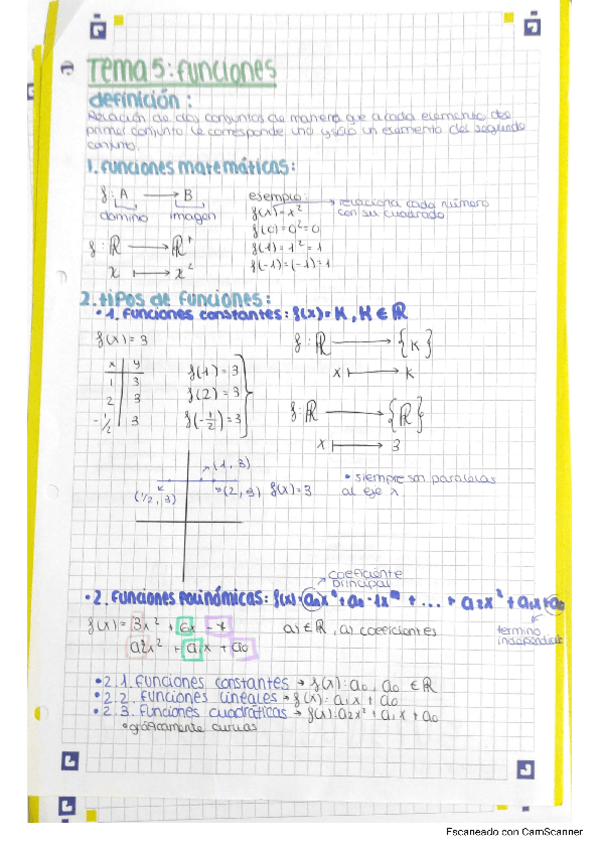 Tema 5: funciones
definición:
Relación de dos conjuntos de manera que a cada elemento del
primer conjunto le corresponde uno y sólo un elemento del segundo
conjunto.
1. funciones matemáticas:
f: A → B
dominio imagen
f: ℝ → ℝ⁺
x ↦ x²
esemplo:
f(x)=x² → relaciona cada número
con su cuadrado
f(0)=0²=0
f(1)=1²=1
f(-1)=(-1)=1
2. tipos de funciones:
• 1. funciones constantes: f(x)=K, K ∈ ℝ
f(x)=3
x y
1 3
2 3
-1/2 3
f(1)=3
f(2)=3
f(-1/2)=3
f: ℝ → {K}
x ↦ K
f: ℝ → {ℝ}
x ↦ 3
(1, 3)
(1/2, 3)
(2, 3) f(x)=3
• siempre son paralelas
al eje x
coeficiente
principal
• 2. funciones polinómicas: f(x)=aₙxⁿ+aₙ-1xⁿ + ... + a₂x²+a₁x+a₀
f(x)=3x²+6x-7
a₂x²+a₁x+a₀
ai ∈ ℝ, ai coeficientes
termino
independiente
• 2.1. funciones constantes → f(x): a₀, a₀ ∈ ℝ
• 2.2. funciones lineales → f(x): a₁x + a₀
• 2.3. funciones cuadráticas → f(x): a₂x² + a₁x + a₀
• gráficamente curvas
Escaneado con CamScanner